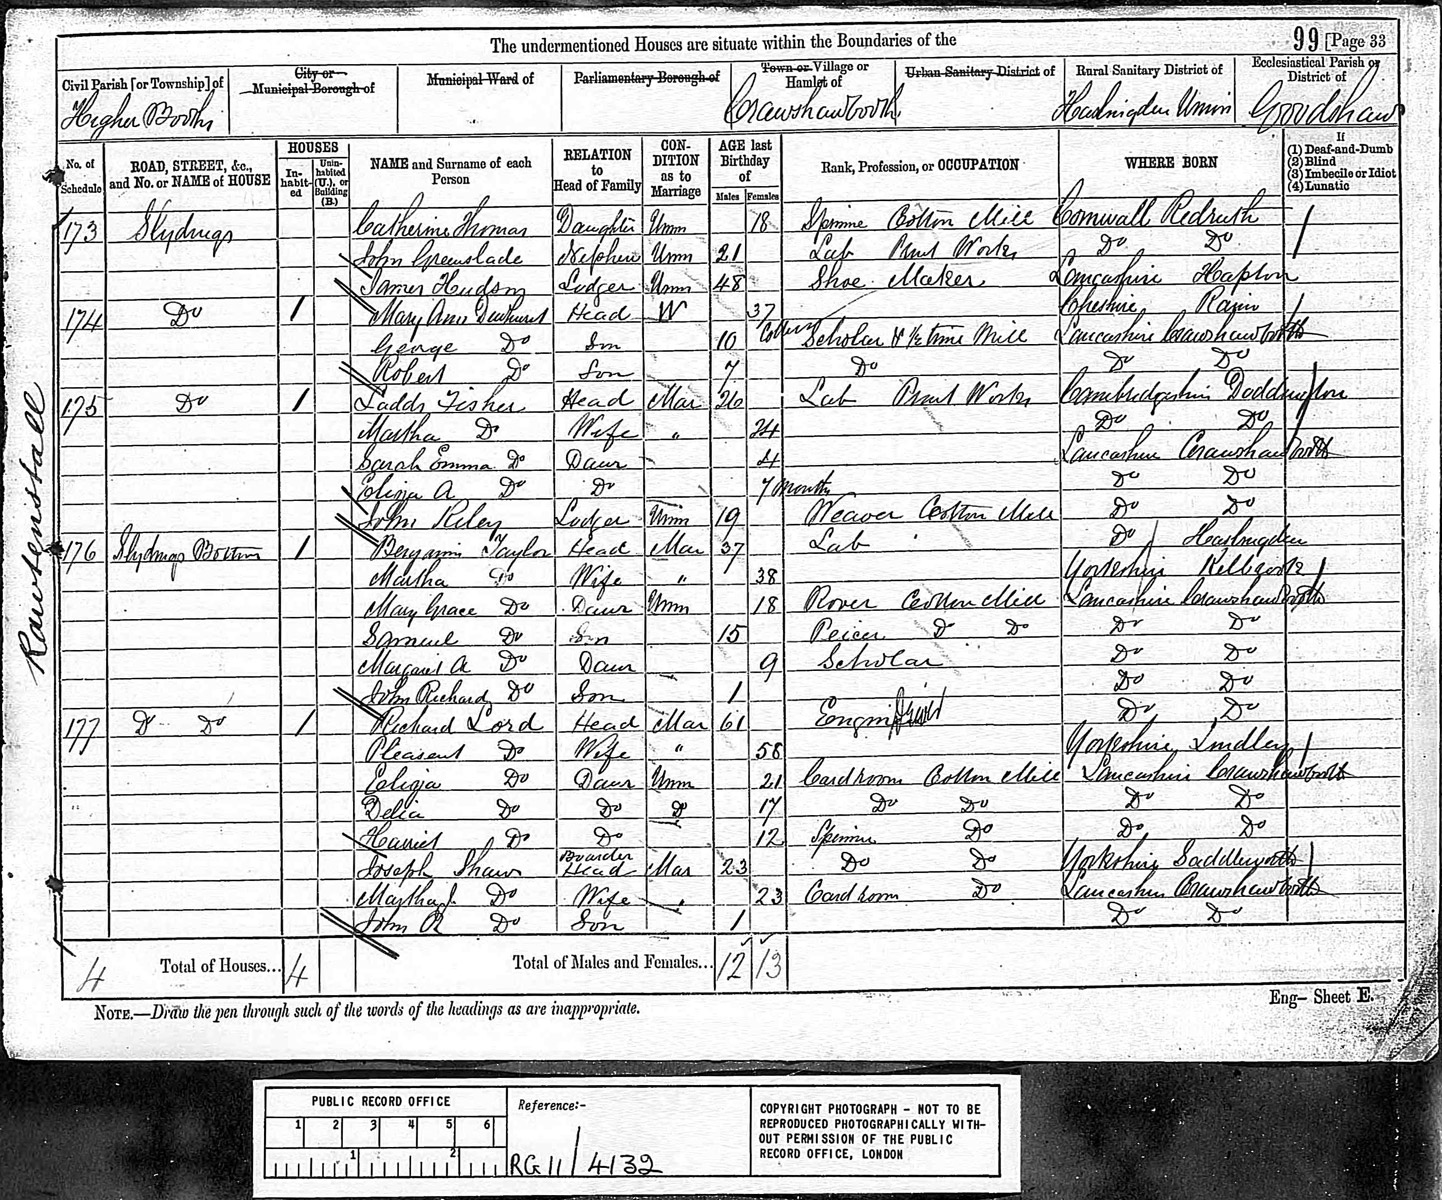 The undermentioned Houses are situate within the Boundaries of the
99 [Page 33
Civil Parish [or Township] of
City or Municipal Borough of
Municipal Ward of
Parliamentary Borough of
Town or Village or Hamlet of
Urban Sanitary District of
Rural Sanitary District of
Ecclesiastical Parish or District of
Higher Booths Crawshawbooth Haslingden Union Goodshaw
No. of Schedule
ROAD, STREET, &c., and No. or NAME of HOUSE
HOUSES
In-habit-ed
Unin-habited (U.), or Building (B.)
NAME and Surname of each Person
RELATION to Head of Family
CON-DITION as to Marriage
AGE last Birthday of
Males Females
Rank, Profession, or OCCUPATION
WHERE BORN
If
(1) Deaf-and-Dumb
(2) Blind
(3) Imbecile or Idiot
(4) Lunatic
173 Catherine Thomas Daughter Unm 18 Cotton Mill Cornwall Redruth
John Greenslade Nephew Unm 21 Lab Print Works Do Do
James Hudson Lodger Unm 48 Shoe Maker Lancashire Hapton
174 Do 1 Mary Ann Dewhurst Head W 37 Cheshire
George Do Son 10 Scholar & ½ time Cotton Mill Lancashire Crawshawbooth
Robert Do Son 7 Do Do Do
175 Do 1 Fisher Head Mar 26 Lab Print Works Cambridgeshire Doddington
Martha Do Wife " 24 Do Do
Sarah Emma Do Daur 4 Lancashire Crawshawbooth
Eliza A Do Do 7 months Do Do
John Riley Lodger Unm 19 Weaver Cotton Mill Do Do
176 Bottom 1 Benjamin Taylor Head Mar 37 Lab Do Haslingden
Martha Do Wife " 38 Yorkshire
Mary Grace Do Daur Unm 18 Rover Cotton Mill Lancashire Crawshawbooth
Samuel Do Son 15 Peicer Do Do Do Do
Margaret A Do Daur 9 Scholar Do Do
John Richard Do Son 1 Do Do
177 Do Do 1 Richard Lord Head Mar 61 Engine Driver Do Do
Pleasent Do Wife " 58 Yorkshire Lindley
Eliza Do Daur Unm 21 Cardroom Cotton Mill Lancashire Crawshawbooth
Delia Do Do Do 17 Do Do Do Do
Harriet Do Do 12 Do Do Do
Joseph Shaw Boarder Head Mar 23 Do Do Yorkshire Saddleworth
Martha J. Do Wife " 23 Cardroom Do Lancashire Crawshawbooth
John R Do Son 1 Do Do
4 Total of Houses... 4 Total of Males and Females... 12 13
NOTE.—Draw the pen through such of the words of the headings as are inappropriate.
Eng— Sheet E.
Rawtenstall
PUBLIC RECORD OFFICE
1 2 3 4 5 6
1 2
Reference:-
RG 11 / 4132
COPYRIGHT PHOTOGRAPH - NOT TO BE
REPRODUCED PHOTOGRAPHICALLY WITH-
OUT PERMISSION OF THE PUBLIC
RECORD OFFICE, LONDON